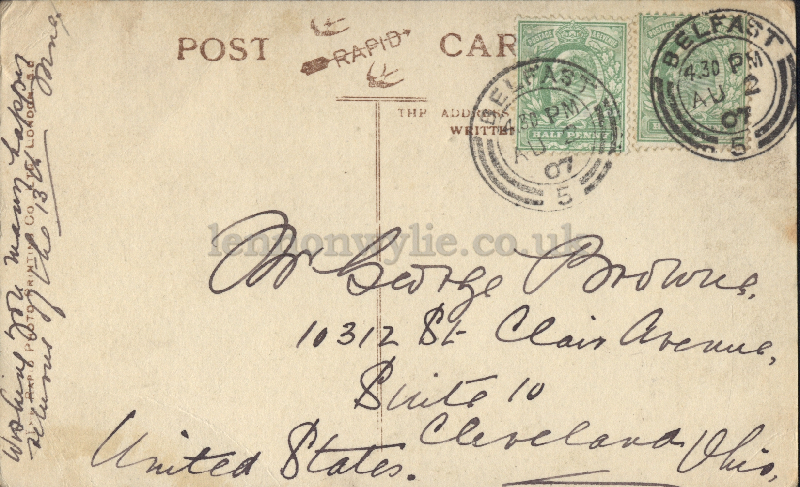 POST CAR
RAPID
THE ADDRESS
WRITTEN
BELFAST
4.30 PM
AU 2
07
5
HALF PENNY
BELFAST
4.30 PM
AU 2
07
5
lennonwylie.co.uk
Mr George Browne,
10312 St Clair Avenue,
Suite 10
Cleveland Ohio,
United States.
Wishing you many happy
returns of the 13th
RAPID PHOTO PRINTING CO. LTD. LONDON E.C.